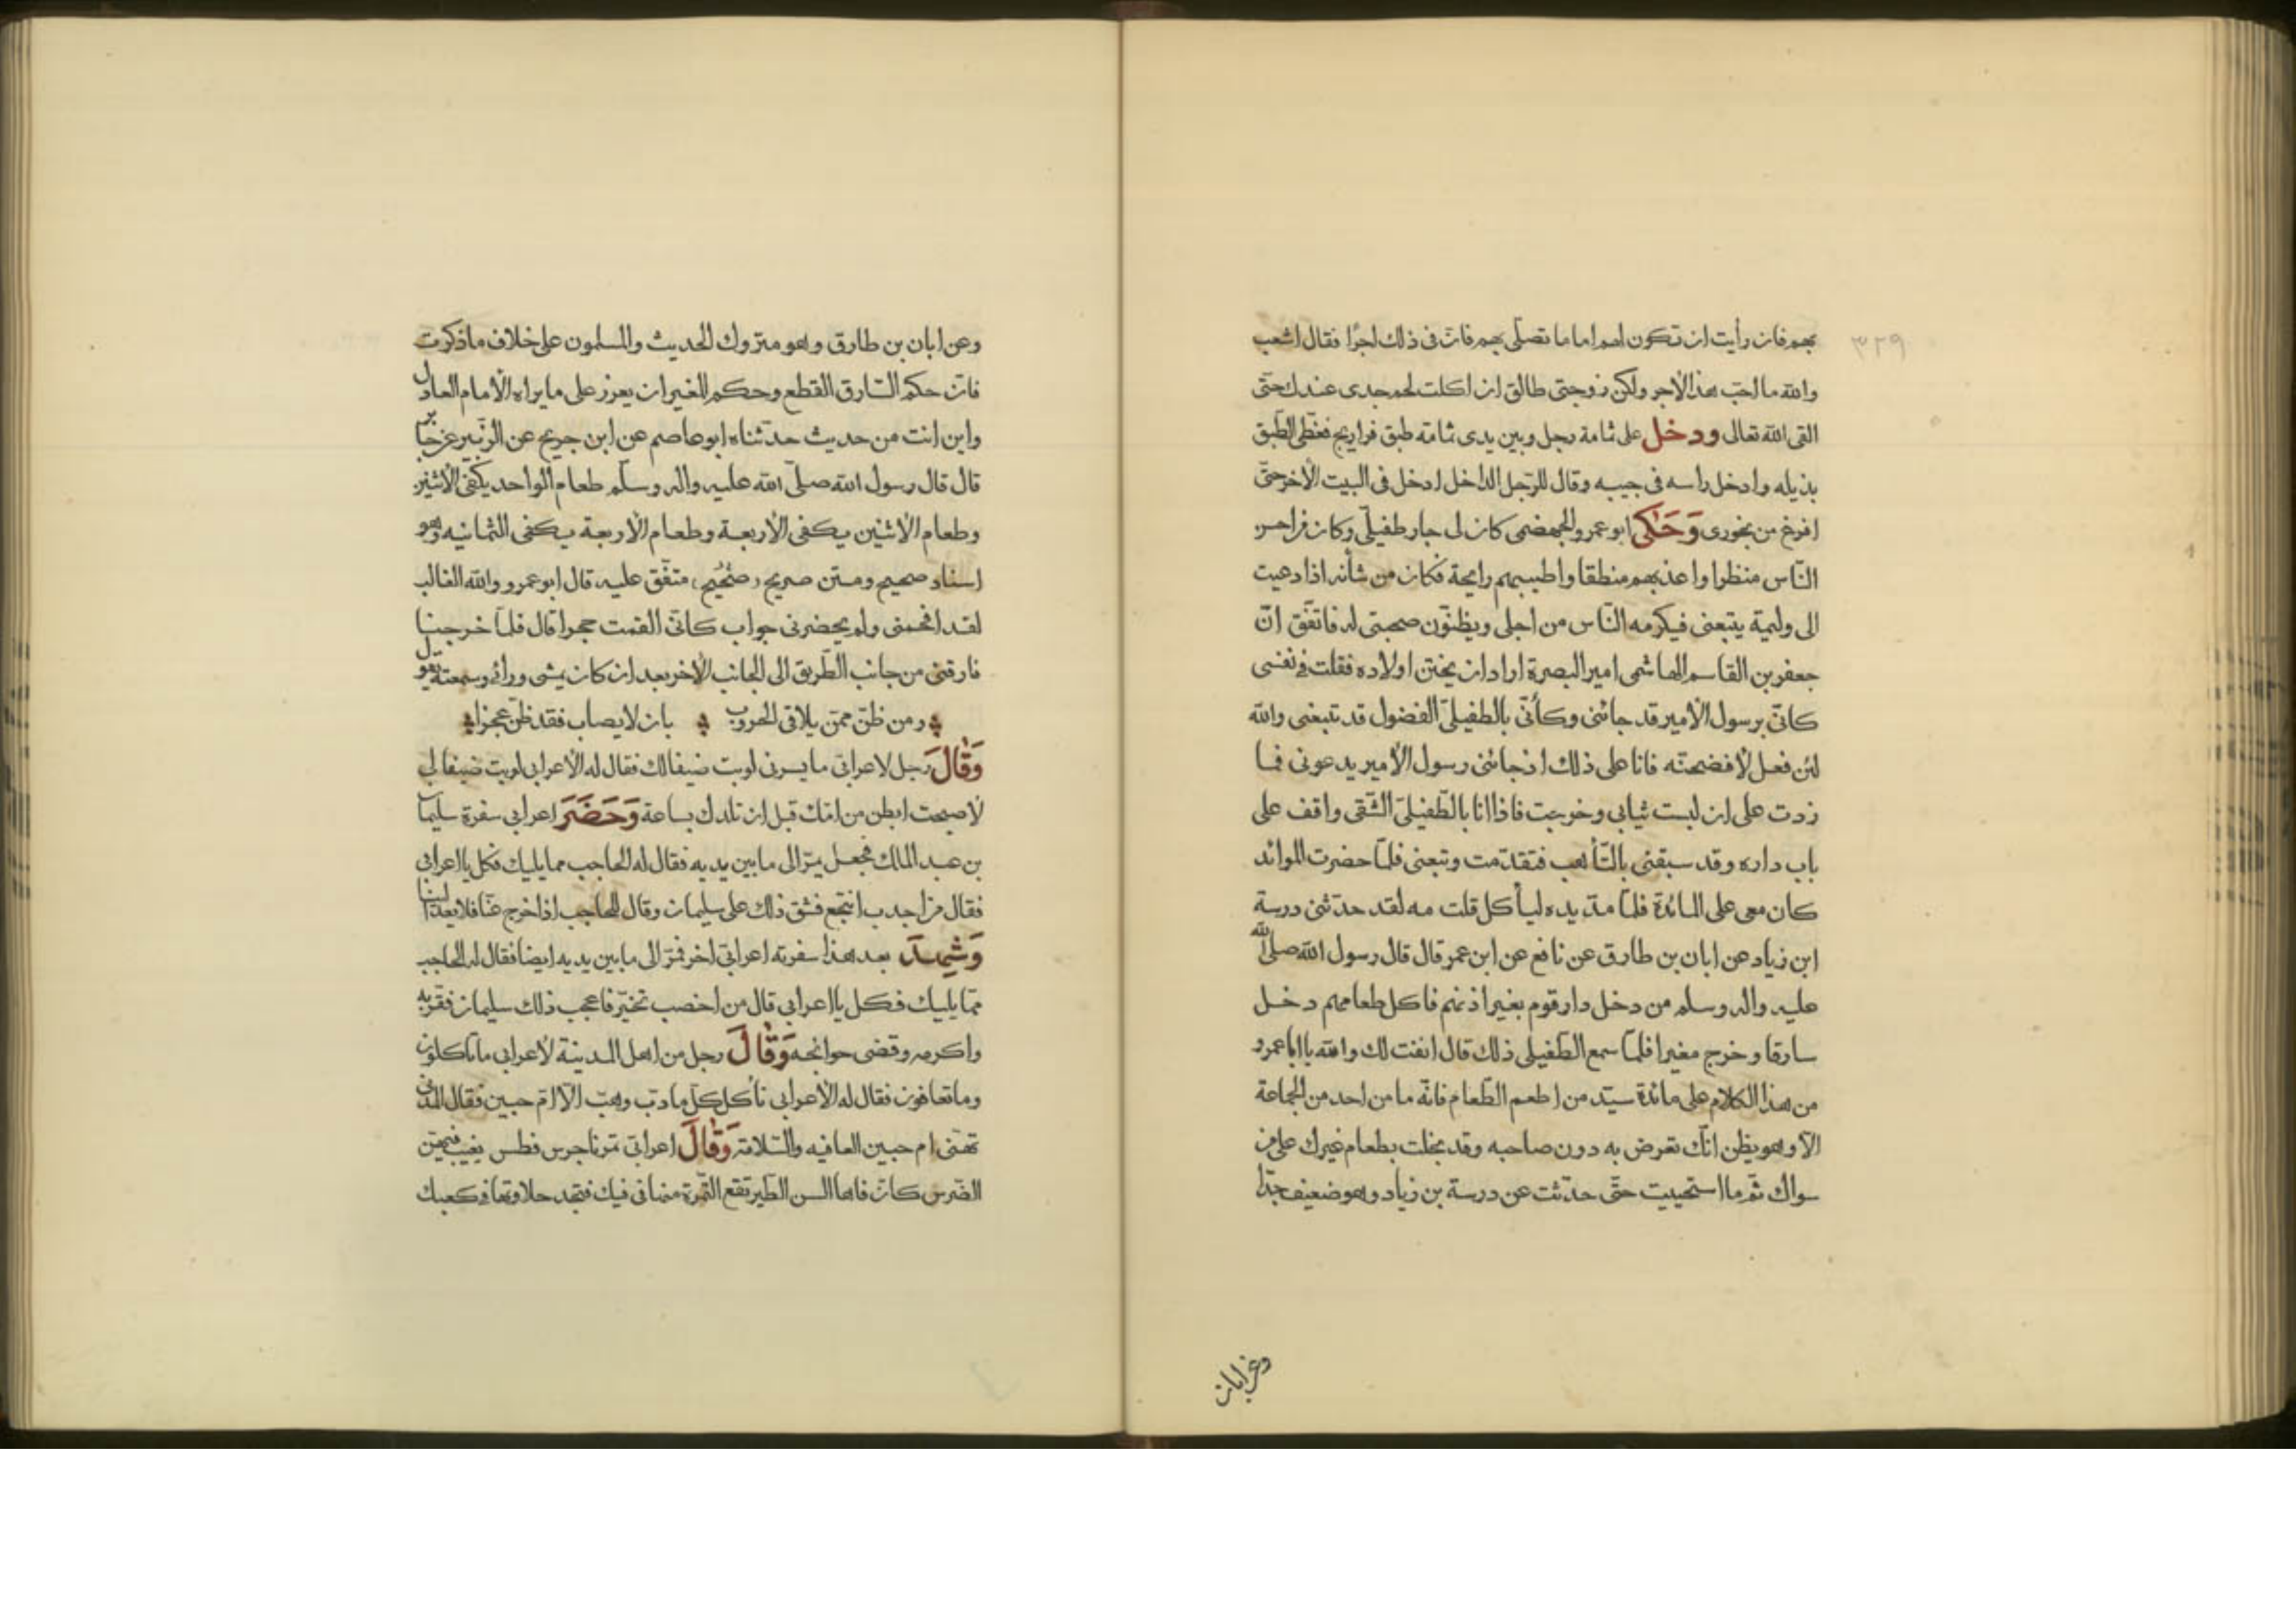 ٣٢٩
بهم فان رأيت ان تكون لهم اماما تصلّى بهم فانّ فى ذلك اجرًا فقال اشعب
والله ما احبّ هذا الاجر ولكن زوجتى طالق ان اكلت لحم جدى عندك حتّى
القى الله تعالى ودخل على ثمامة رجل وبين يدى ثمامة طبق فراريج فغطّى الطبق
بذيله وادخل راسه فى جيبه وقال للرّجل الداخل ادخل فى البيت الأخر حتّى
افرغ من بخورى وَحَكى ابو عمرو الجهضمى كان لى جار طفيلّى وكان من احسن
النّاس منظرا واعذبهم منطقا واطيبهم رايحة فكان من شأنه اذا دعيت
الى وليمة يتبعنى فيكرمه النّاس من اجلى ويظنّون صحبتى له فاتّفق انّ
جعفر بن القاسم الهاشمى امير البصرة اراد ان يختن اولاده فقلت فى نفسى
كانّى برسول الأمير قد جائنى وكأنّى بالطفيلىّ الفضول قد تتبعنى والله
لئن فعل لأفضحنّه فانا على ذلك اذ جائنى رسول الأمير يدعونى فما
زدت على ان لبست ثيابى وخرجت فاذا انا بالطّفيلىّ الشّقى واقف على
باب داره وقد سبقنى بالتّأهب فتقدّمت وتبعنى فلمّا حضرت الموائد
كان معى على المائدة فلمّا مدّ يده ليأكل قلت مه لقد حدّثنى درسة
ابن زياد عن ابان بن طارق عن نافع عن ابن عمر قال قال رسول الله صلى الله
عليه واله وسلم من دخل دار قوم بغير اذنهم فاكل طعامهم دخل
سارقا وخرج مغيرا فلمّا سمع الطّفيلى ذلك قال انفت لك والله يا ابا عمرو
من هذا الكلام على مائدة سيّد من اطعم الطّعام فانّه ما من احد من الجماعة
الاّ وهو يظن انّك تعرض به دون صاحبه وقد بخلت بطعام غيرك على من
سواك ثمّ ما استحييت حتّى حدّثت عن درسة بن زياد وهو ضعيف جدّا
وعن ابان
وعن ابان بن طارق وهو متروك الحديث والمسلمون على خلاف ما ذكرت
فانّ حكم السّارق القطع وحكم المغير ان يعزر على ما يراه الأمام العادل
واين انت من حديث حدّثناه ابو عاصم عن ابن جريج عن الزّبير عن جابر
قال قال رسول الله صلّى الله عليه واله وسلّم طعام الواحد يكفى الأثنين
وطعام الأثنين يكفى الأربعة وطعام الأربعة يكفى الثمانيه وهو
اسناد صحيح ومتن صريح صَحيح متّفق عليه قال ابو عمرو والله الغالب
لقد افحمنى ولم يحضرنى جواب كانّى القمت حجرا قال فلمّا خرجنا
فارقنى من جانب الطّريق الى الجانب الأخر بعد ان كان يمشى ورائى وسمعته يقول
ومن ظنّ ممّن يلاقى الحروب بان لا يصاب فقد ظنّ عجزا
وَقَالَ رجل لاعرابى ما يسرنى لوبت ضيفا لك فقال له الأعرابى لوبت ضيفا لى
لأصبحت ابطن من امّك قبل ان تلدك بساعة وَحَضَرَ اعرابى سفرة سليمان
بن عبد المالك فجعل يمرّ الى ما بين يديه فقال له الحاجب مما يليك فكل يا اعرابى
فقال من اجدب انتجع فشق ذلك على سليمان وقال للحاجب اذا خرج عنّا فلا يعد الينا
وَشَهِدَ بعد هذا سفرته اعرابى اخر فمرّ الى ما بين يديه ايضا فقال له الحاجب
ممّا يليك فكل يا اعرابى قال من اخصب تخيّر فاعجب ذلك سليمان فقرّبه
واكرمه وقضى حوائجه وَقَالَ رجل من اهل المدينة لأعرابى ما تاكلون
وما تعافون فقال له الأعرابى نأكل كلّ ما دبّ وهبّ الاّ امّ حبين فقال المدنى
تهنّى ام حبين العافيه والسّلامة وَقَالَ اعرابى تمرنا جرس فطس يغيب فيهنّ
الضّرس كانّ فاها السن الطّير تقع التّمرة منها فى فيك فتجد حلاوتها فى كعبك